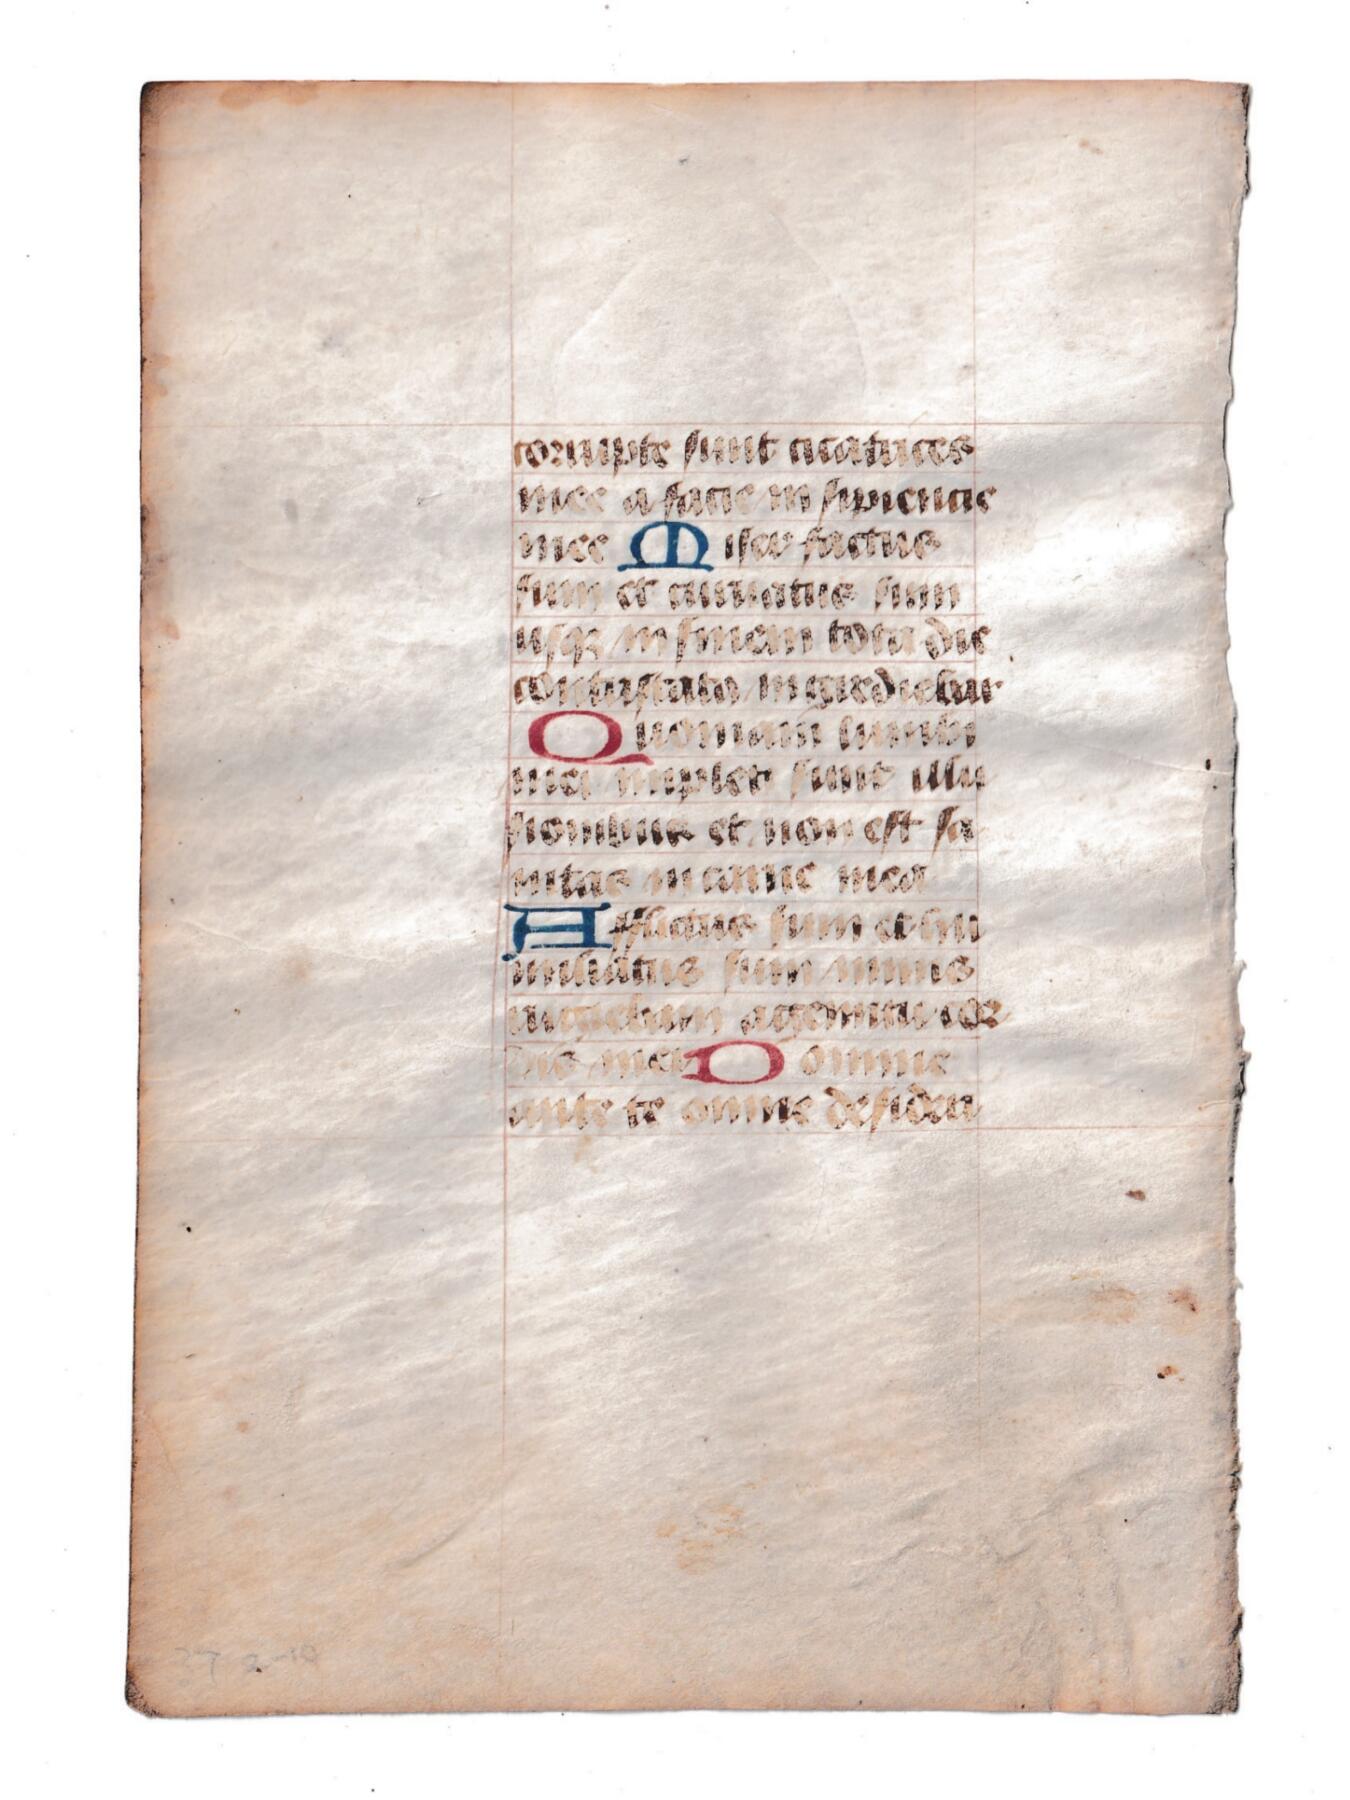 corrupte sunt cicatrices
mee a facie insipiencie
mee Miser factus
sum et curuatus sum
usqz in finem tota die
contristatus ingrediebar
Quoniam lumbi
mei impleti sunt illu
sionibus et non est sa
nitas in carne mea
Afflictus sum et hu
miliatus sum nimis
rugiebam a gemitu cor
dis mei Domine
ante te omne desideri